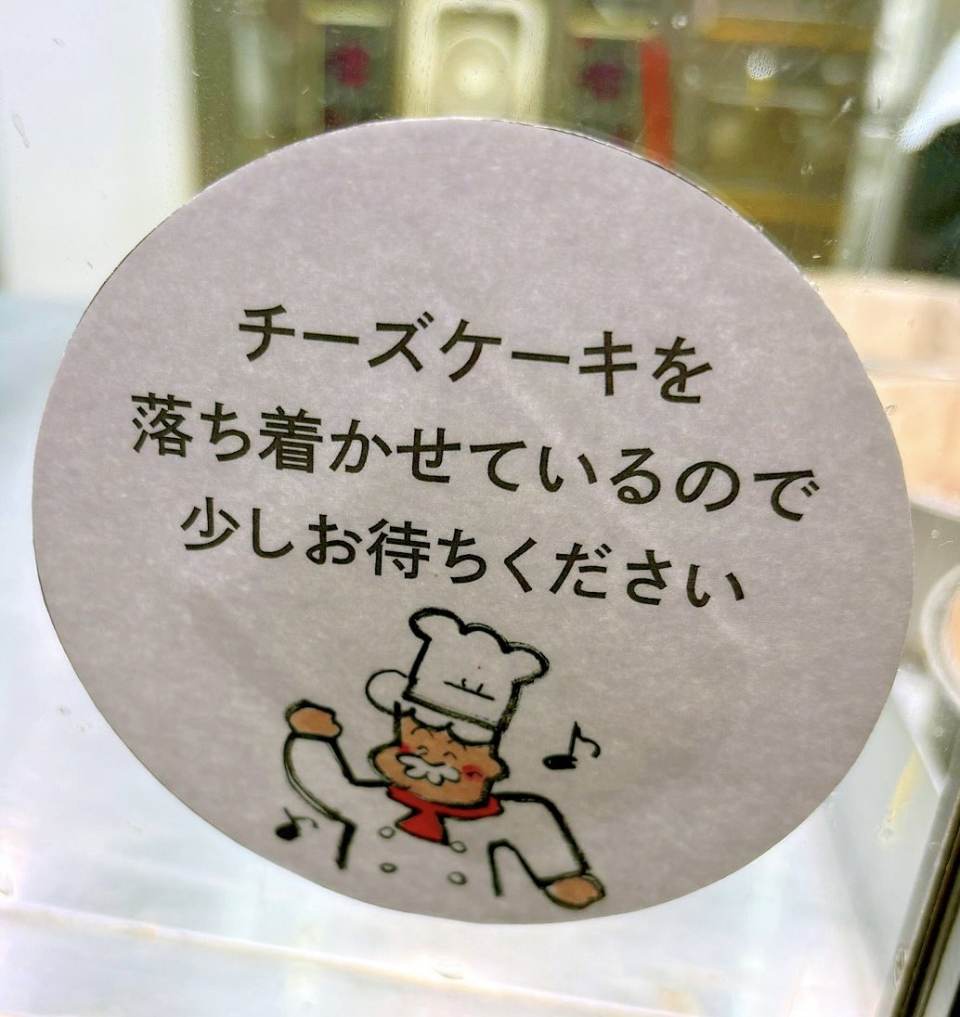 チーズケーキを
落ち着かせているので
少しお待ちください